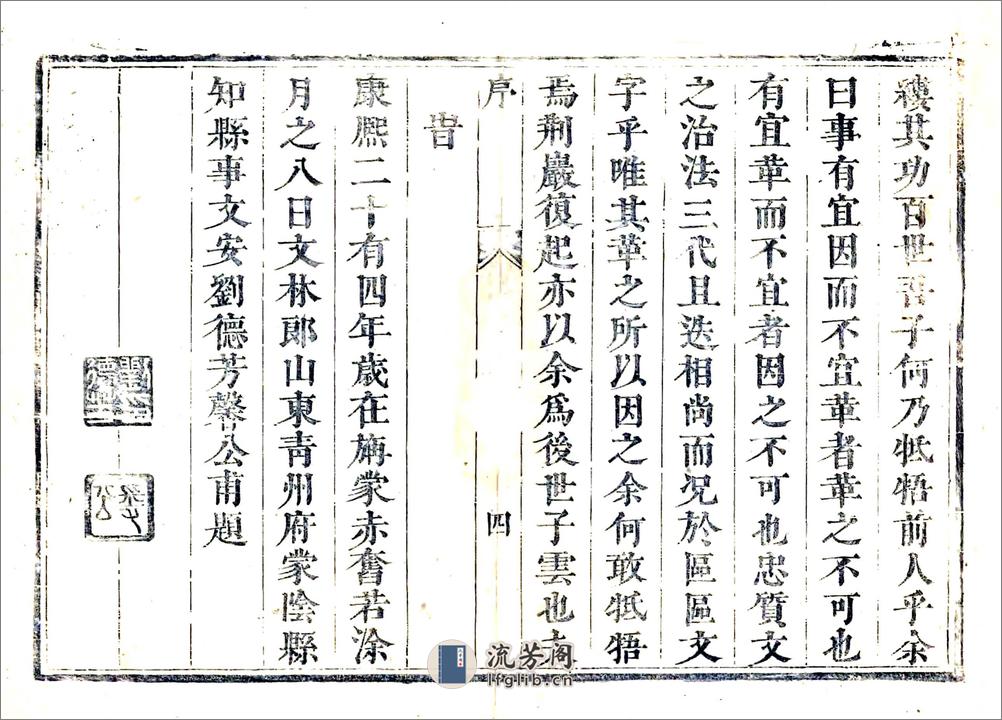 纓其功百世吾子何乃牴牾前人乎余
曰事有宜因而不宜革者革之不可也
有宜革而不宜者因之不可也忠質文
之治法三代且迭相尚而况於區區文
字乎唯其革之所以因之余何敢牴牾
焉荆巖復起亦以余為後世子雲也
序
四
旹
康熙二十有四年歲在旃蒙赤奮若涂
月之八日文林郎山東青州府蒙陰縣
知縣事文安劉德芳馨公甫題
流芳阁
lfglib.cn